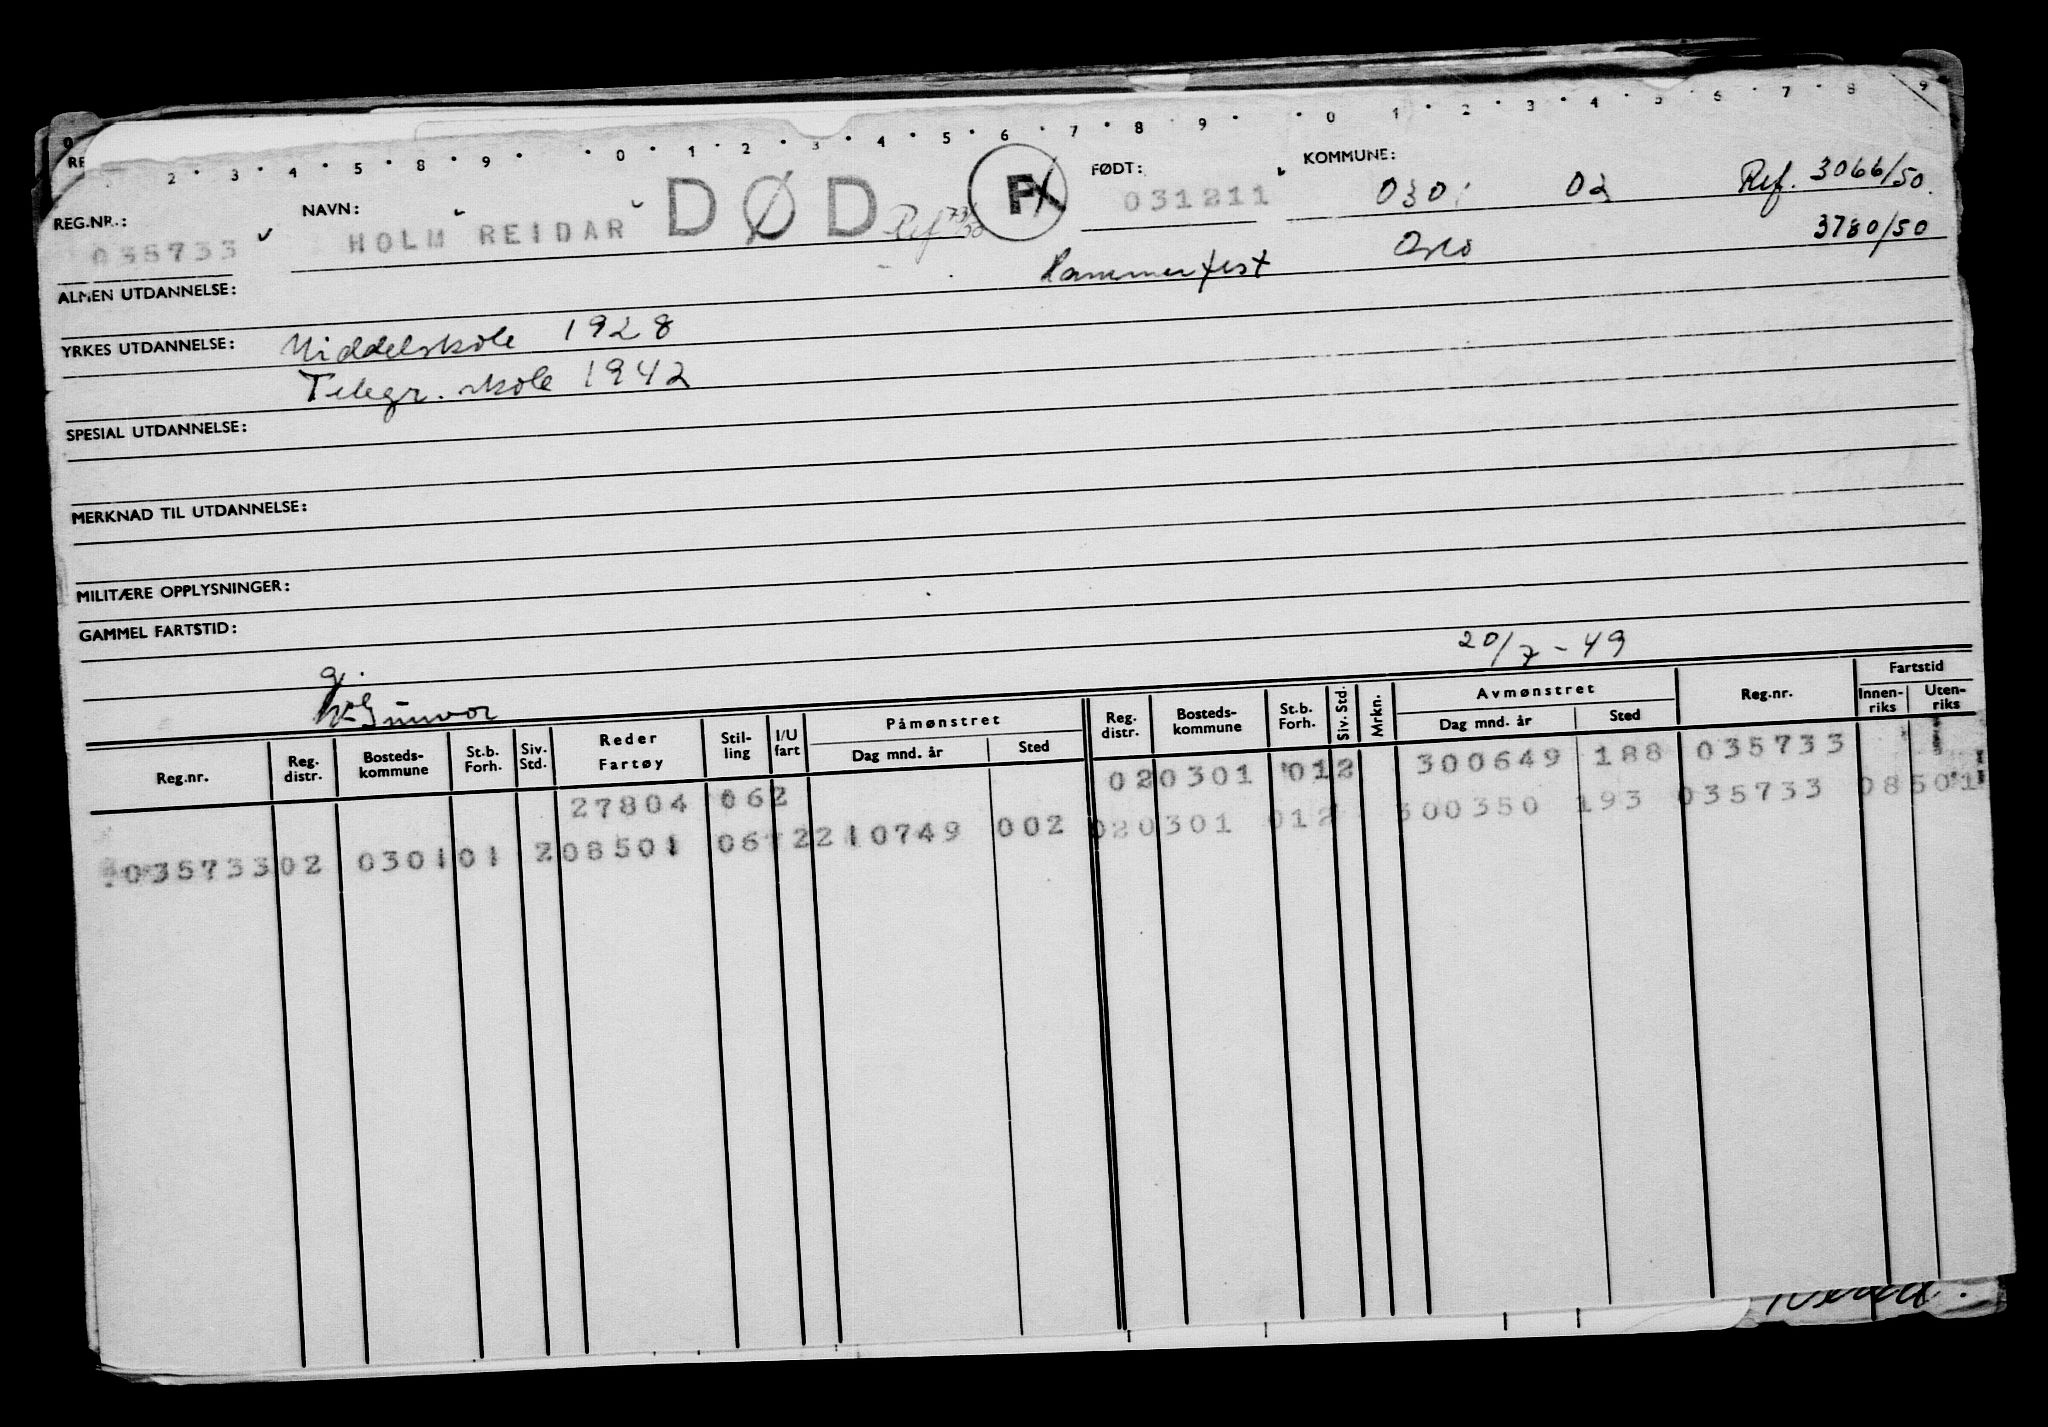 0 1 2 3 4 5 6 7 8 9
2 3 4 5 8 9 0 1 2 3 4 5 6 7 8 9
RE
REG.NR.: NAVN: FØDT: KOMMUNE:
035733 HOLM REIDAR DØD Ref F 031211 0301 02 Ref. 3066/50.
Hammerfest Oslo 3780/50
ALMEN UTDANNELSE:
YRKES UTDANNELSE: Middelskole 1928
Telegr. skole 1942
SPESIAL UTDANNELSE:
MERKNAD TIL UTDANNELSE:
MILITÆRE OPPLYSNINGER:
GAMMEL FARTSTID:
g. 20/7-49
Gunvor
Reg.nr. Reg. distr. Bosteds-kommune St.b. Forh. Siv. Std. Reder Fartøy Stil-ling I/U fart Påmønstret Dag mnd. år Sted Reg. distr. Bosteds-kommune St.b. Forh. Siv. Std. Mrkn. Avmønstret Dag mnd. år Sted Reg.nr. Fartstid Innen-riks Uten-riks
27804 062 020301 012 300649 188 035733
03573302 030101 208501 06 2210749 002 020301 012 300350 193 035733 08501